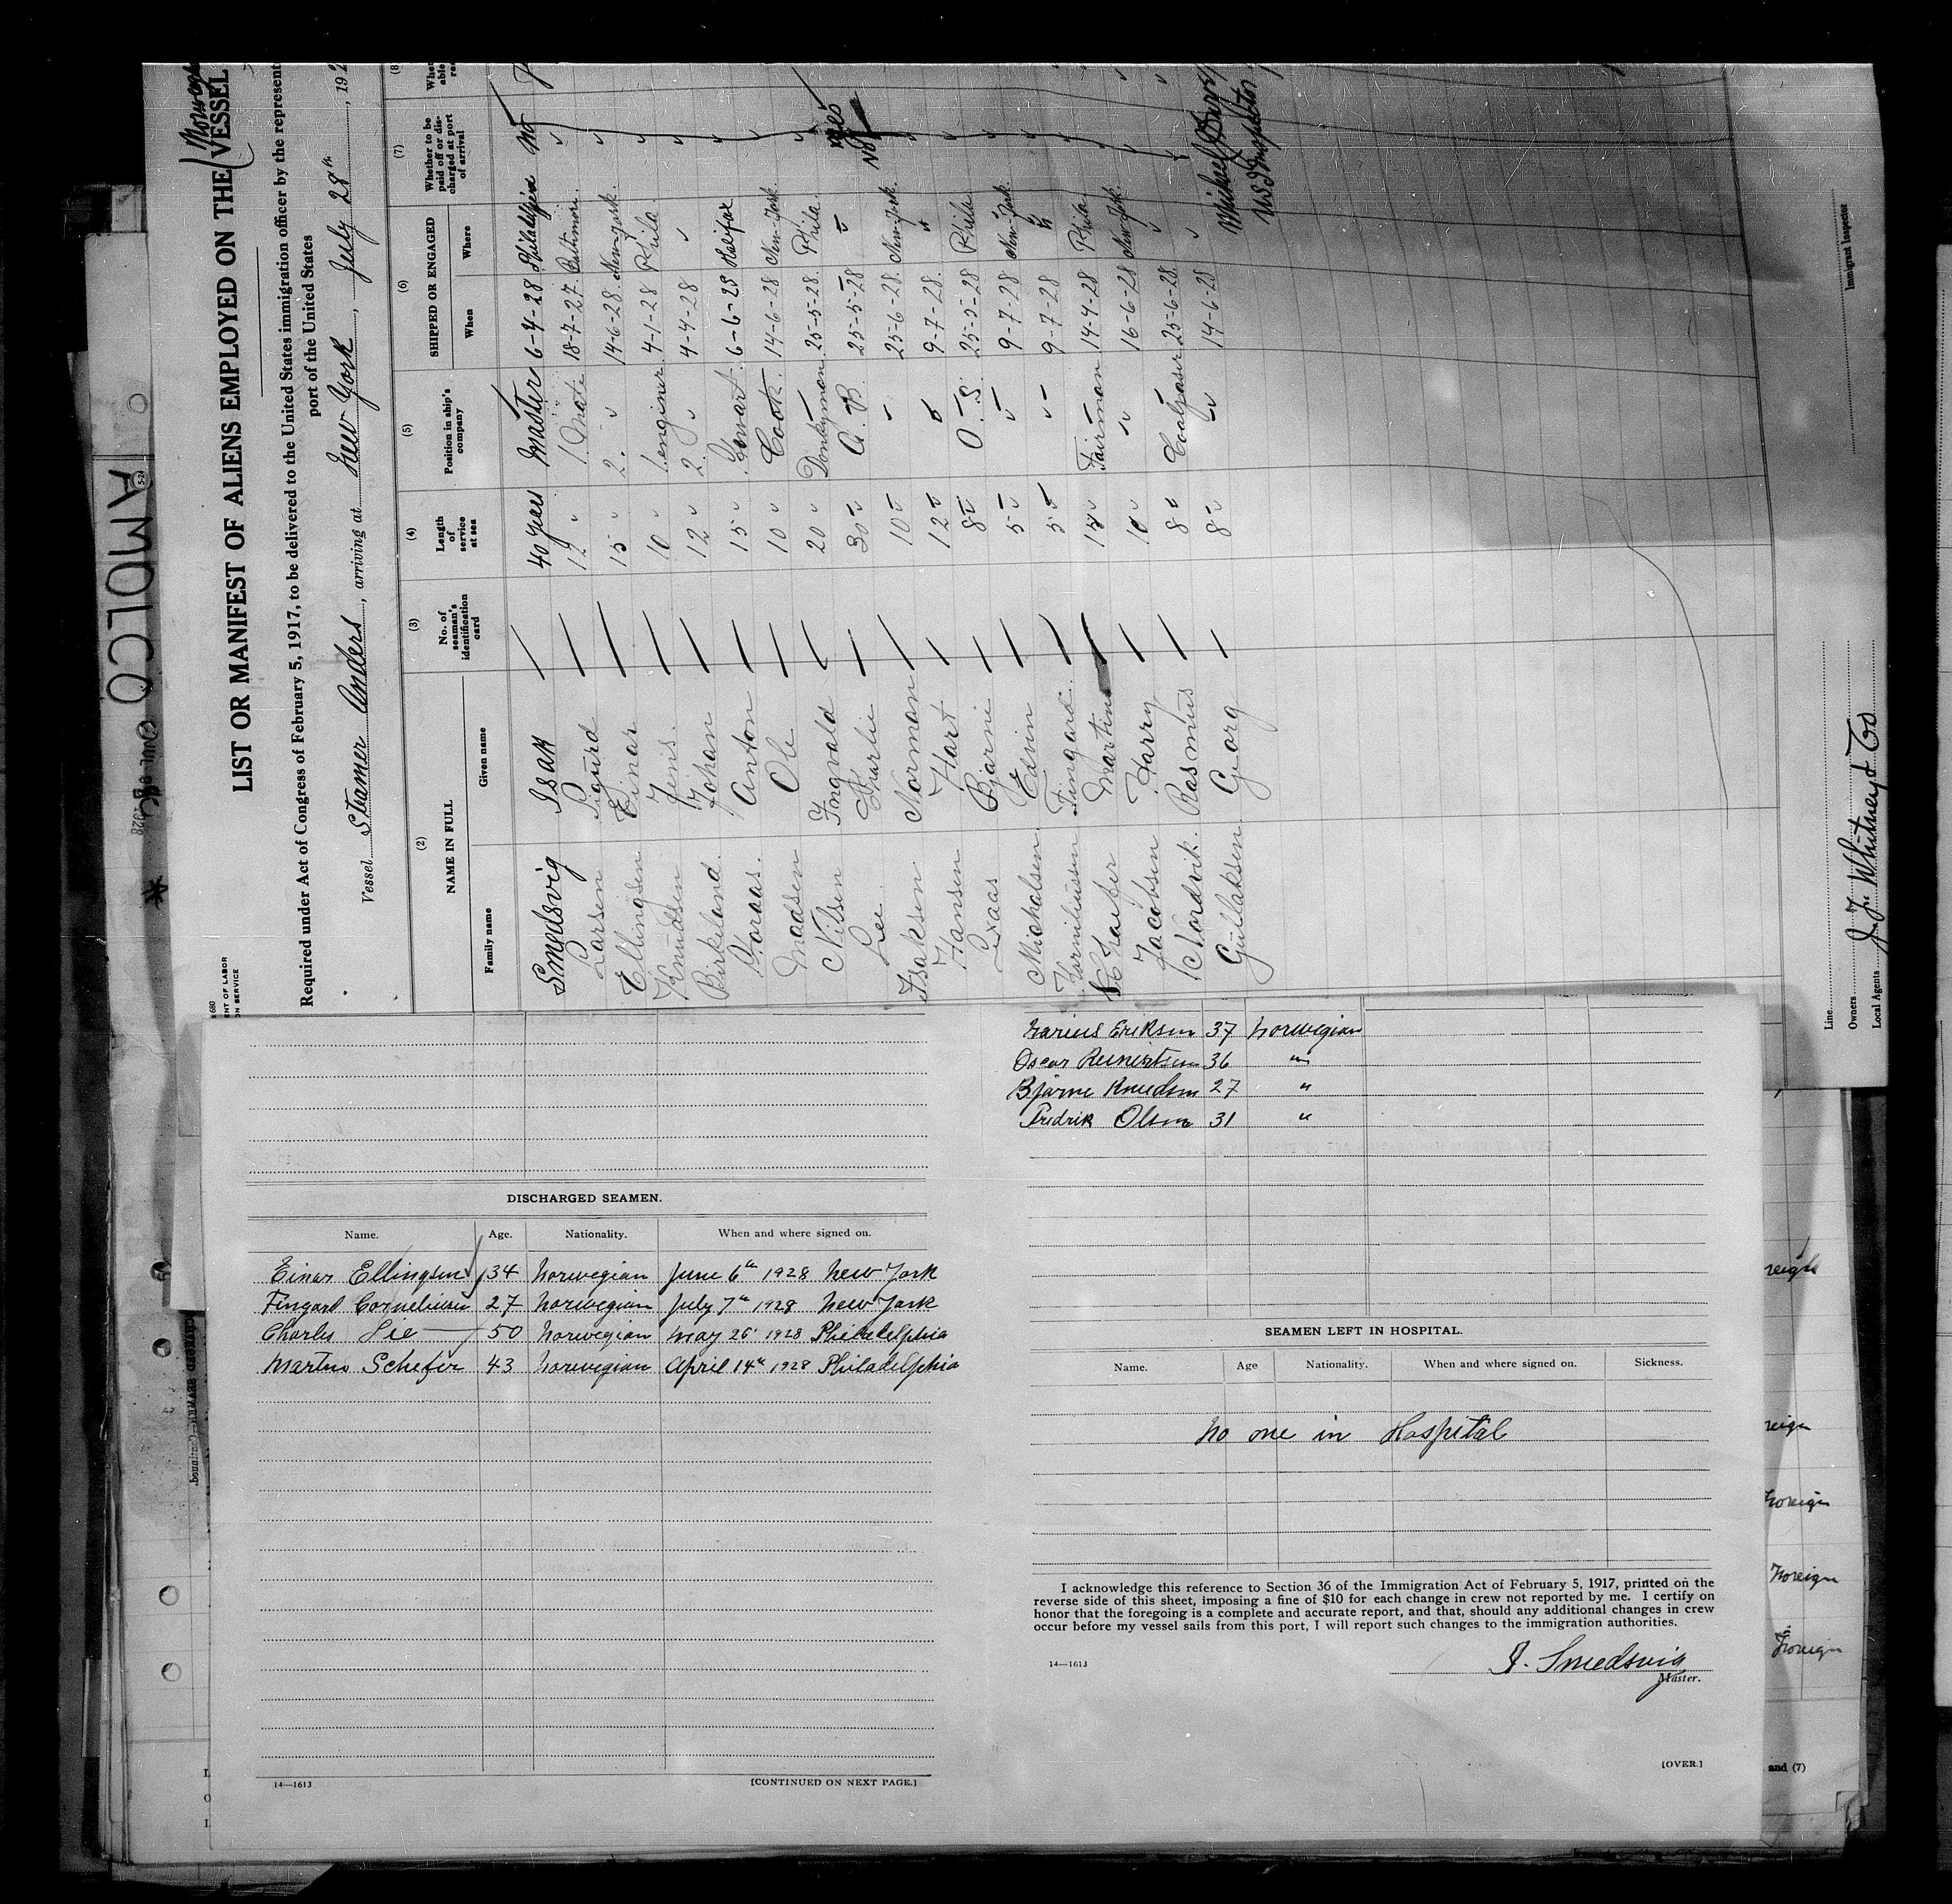 LIST OR MANIFEST OF ALIENS EMPLOYED ON THE VESSEL
Required under Act of Congress of February 5, 1917, to be delivered to the United States immigration officer by the represent
port of the United States
Vessel Steamer Anders, arriving at New York, July 28th, 192
(2) (3) (4) (5) (6) (7) (8)
NAME IN FULL
Family name Given name
No. of seaman's identification card
Length of service at sea
Position in ship's company
SHIPPED OR ENGAGED
When Where
Whether to be paid off or discharged at port of arrival
Smedsvig Isak 40 years Master 6-4-28 Philadelphia No
Larsen Sigurd 12 " 1. Mate 18-7-27
Ellingsen Einar 15 " 2. " 14-6-28 New-york
Knudsen Jens 10 " 1. enginer 4-1-28 Phila.
Birkeland Johan 12 " 2. " 4-4-28 "
Anton 15 " 6-6-28 Halifax
Madsen Ole 10 " Cook. 14-6-28 New-York
Nilsen 20 " Donkyman 25-5-28 Phila.
Lee Charlie 30 " A. B. 25-5-28 "
Isaksen Norman 10 " " 25-6-28 New-York.
Hansen Hart 12 " " 9-7-28 "
Bjarne 8 " O. S. 25-5-28 Phila
Michalsen Edvin 5 " " 9-7-28 New-York
Korniliussen Fingard 5 " " 9-7-28 "
Martin Fairman 14-4-28 Phila
Jacobsen Harry 10 " " 16-6-28 New-York
Nordvik Rasmus 8 " Coalpaser 25-6-28 "
Gullaksen Georg 8 " " 14-6-28 "
US Inspector
Immigrant Inspector
Line
Owners
Local Agents J. F. Whitney & Co
AMOLCO
Marius Eriksen 37 Norwegian
Oscar Reinertsen 36 "
Bjarne Knudsen 27 "
Fredrik Olsen 31 "
DISCHARGED SEAMEN.
Name. Age. Nationality. When and where signed on.
Einar Ellingsen 34 Norwegian June 6th 1928 New York
Fingard Corneliusen 27 Norwegian July 7th 1928 New York
Charles Lie 50 Norwegian May 25 1928 Philadelphia
Martin Schefer 43 Norwegian April 14th 1928 Philadelphia
14—1613 [CONTINUED ON NEXT PAGE.]
SEAMEN LEFT IN HOSPITAL.
Name. Age Nationality. When and where signed on. Sickness.
No one in Hospital
I acknowledge this reference to Section 36 of the Immigration Act of February 5, 1917, printed on the
reverse side of this sheet, imposing a fine of $10 for each change in crew not reported by me. I certify on
honor that the foregoing is a complete and accurate report, and that, should any additional changes in crew
occur before my vessel sails from this port, I will report such changes to the immigration authorities.
14—1613
I. Smedsvig
Master.
[OVER.]
reign
reign
Foreign
Foreign
Foreign
and (7)